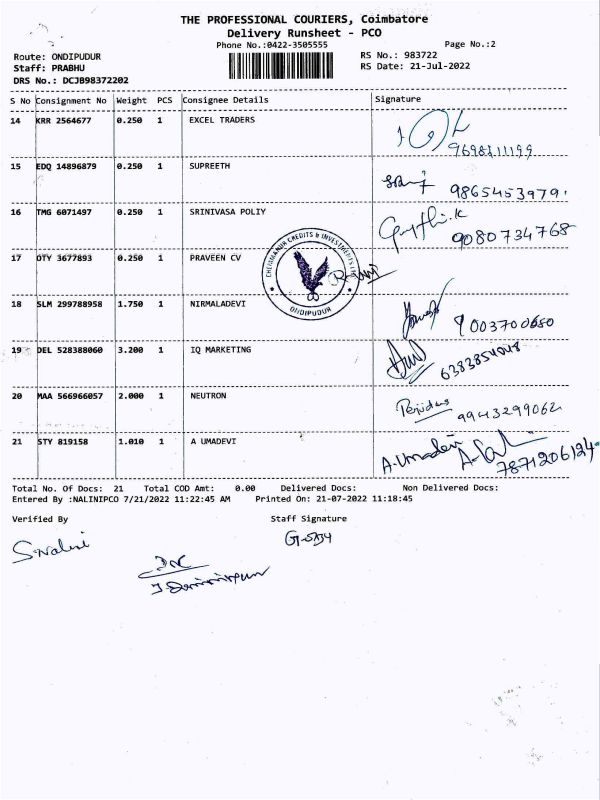 THE PROFESSIONAL COURIERS, Coimbatore
Delivery Runsheet - PCO
Phone No.:0422-3505555 Page No.:2
Route: ONDIPUDUR RS No.: 983722
Staff: PRABHU RS Date: 21-Jul-2022
DRS No.: DCJB98372202
S No Consignment No Weight PCS Consignee Details Signature
14 KRR 2564677 0.250 1 EXCEL TRADERS
15 EDQ 14896879 0.250 1 SUPREETH 9865453979.
16 TMG 6071497 0.250 1 SRINIVASA POLIY 9080734768
17 OTY 3677893 0.250 1 PRAVEEN CV
CREDITS & INVESTMENTS
ONDIPUDUR
18 SLM 299788958 1.750 1 NIRMALADEVI 9003700680
19 DEL 528388060 3.200 1 IQ MARKETING
20 MAA 566966057 2.000 1 NEUTRON 9943299062
21 STY 819158 1.010 1 A UMADEVI A.Umadevi 7871206124
Total No. Of Docs: 21 Total COD Amt: 0.00 Delivered Docs: Non Delivered Docs:
Entered By :NALINIPCO 7/21/2022 11:22:45 AM Printed On: 21-07-2022 11:18:45
Verified By Staff Signature
S.Nalini